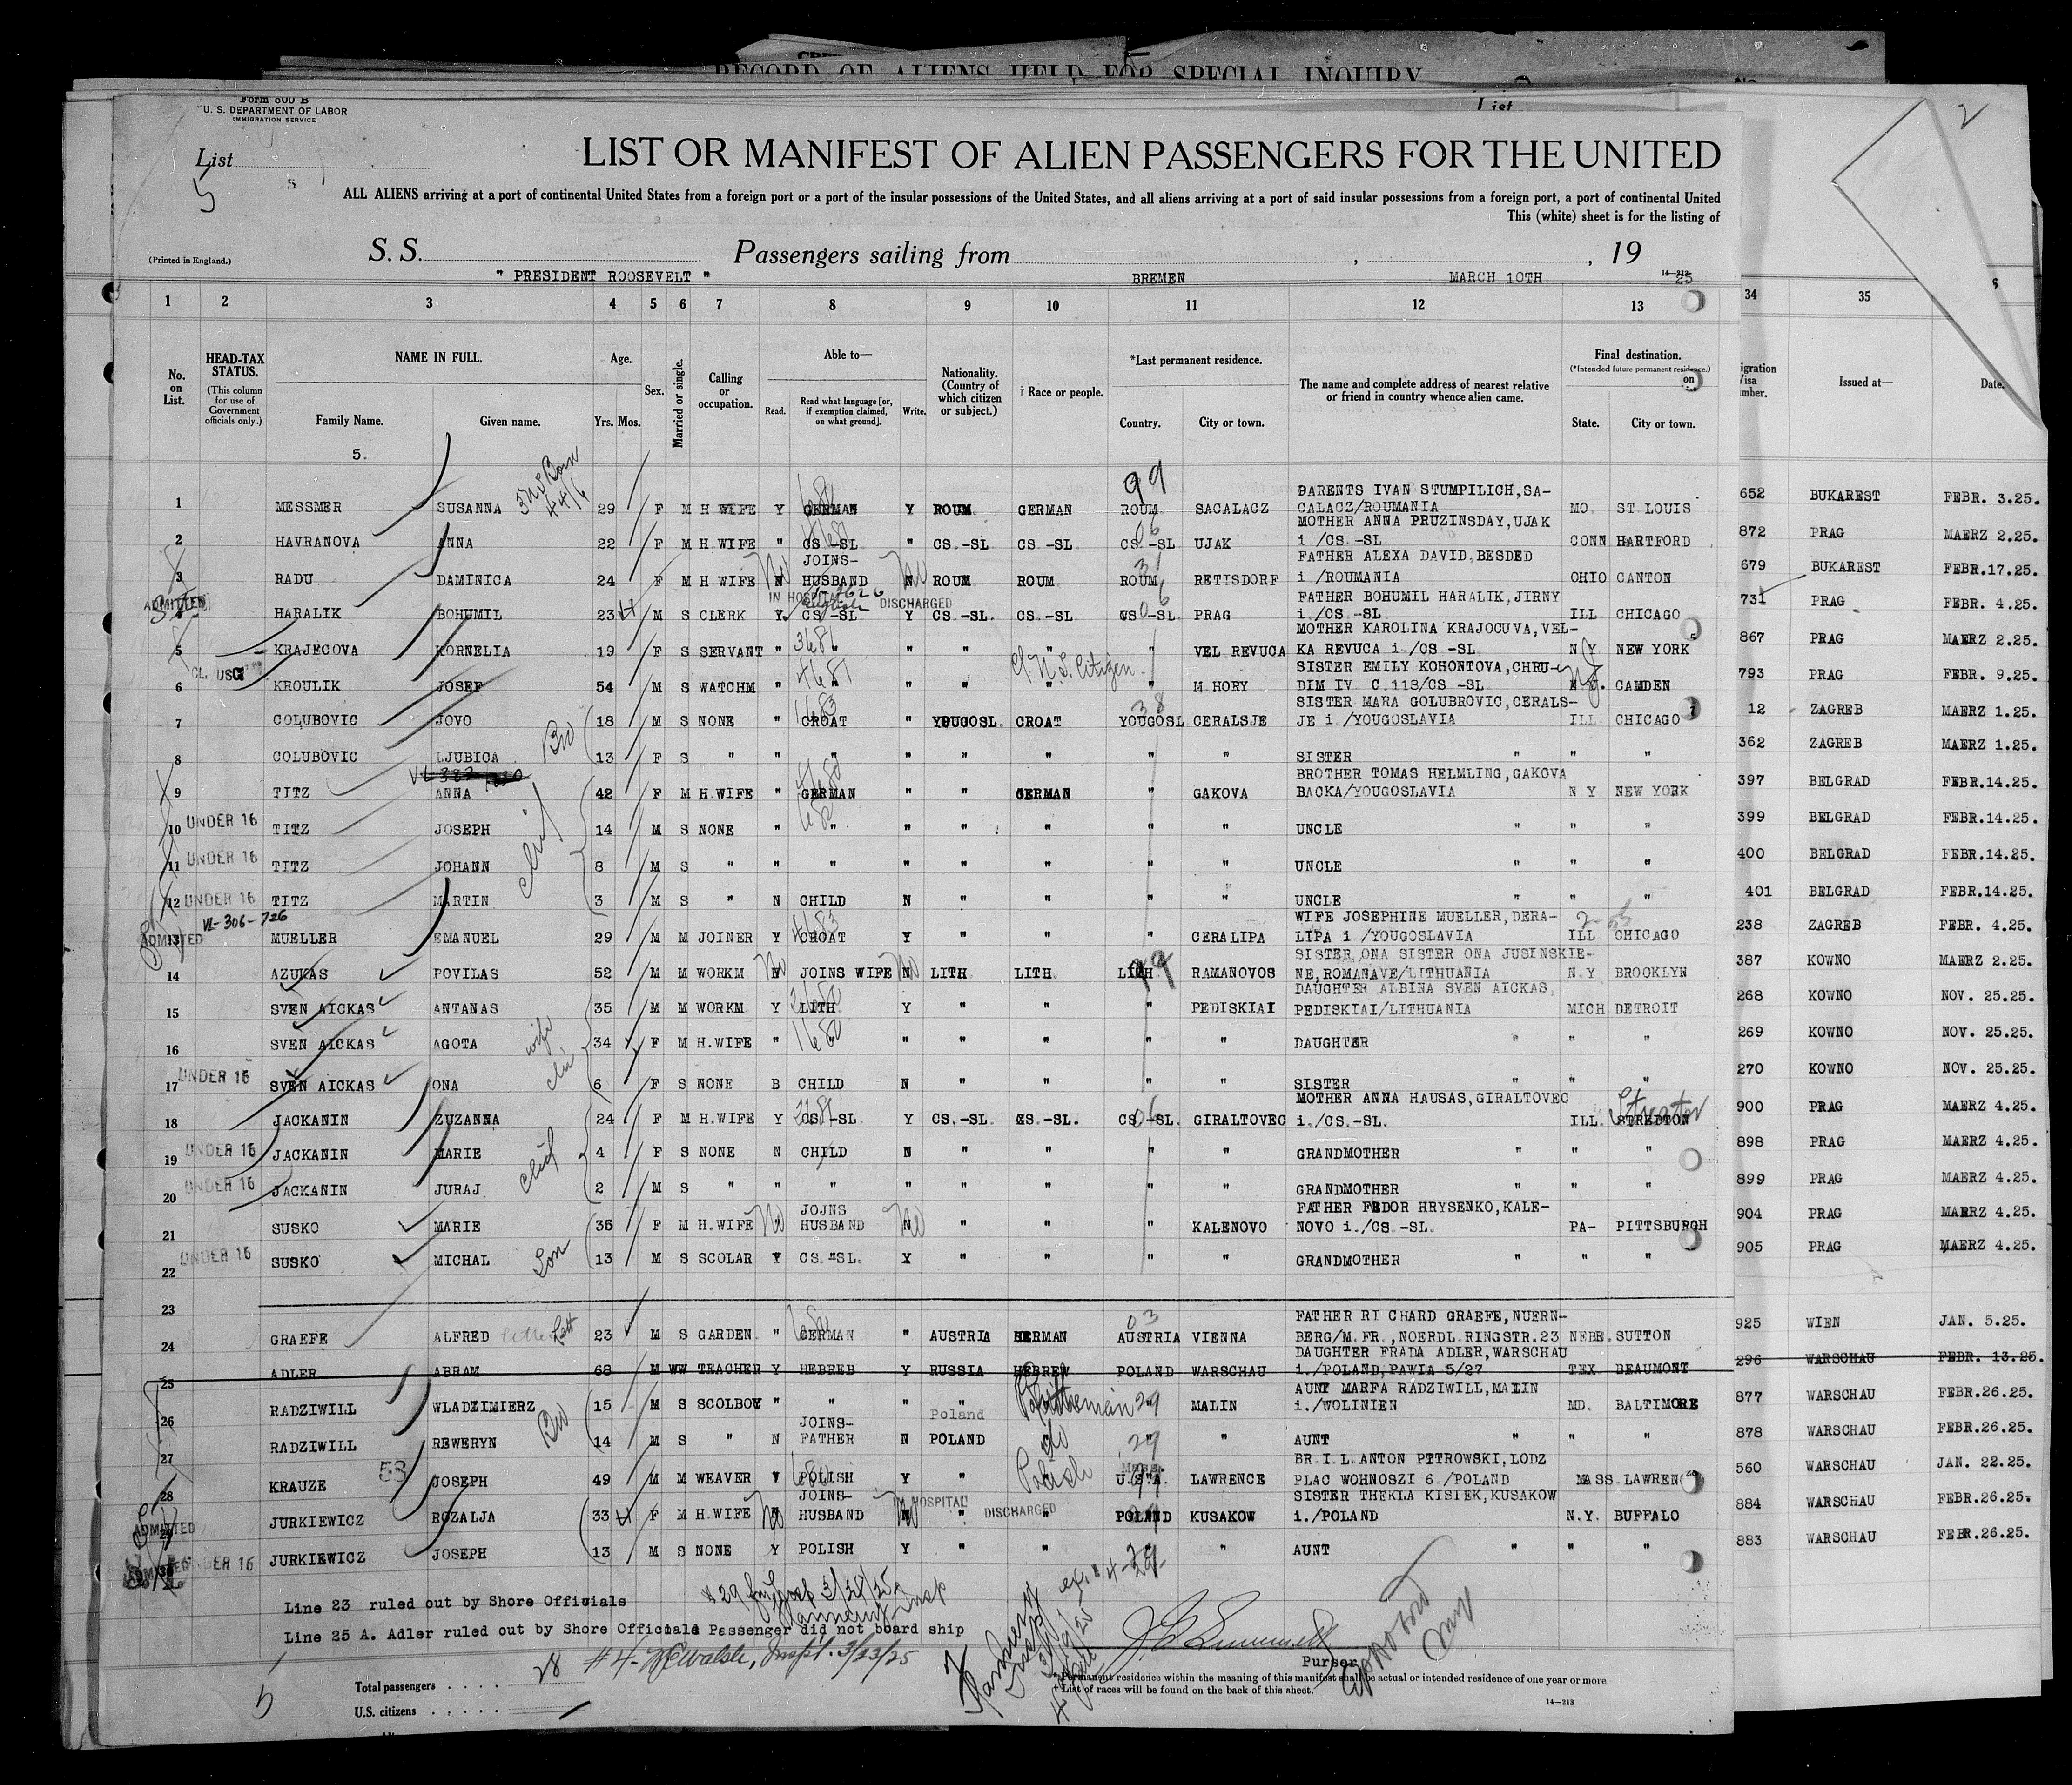 RECORD OF ALIENS HELD FOR SPECIAL INQUIRY
List
Form 800 B
U. S. DEPARTMENT OF LABOR
IMMIGRATION SERVICE
List
5
5
2
LIST OR MANIFEST OF ALIEN PASSENGERS FOR THE UNITED
ALL ALIENS arriving at a port of continental United States from a foreign port or a port of the insular possessions of the United States, and all aliens arriving at a port of said insular possessions from a foreign port, a port of continental United
This (white) sheet is for the listing of
(Printed in England.) S. S. Passengers sailing from , , 19
" PRESIDENT ROOSEVELT " BREMEN MARCH 10TH 25
14-212
1 2 3 4 5 6 7 8 9 10 11 12 13 34 35
No. on List. HEAD-TAX STATUS. (This column for use of Government officials only.) NAME IN FULL. Family Name. Given name. Age. Yrs. Mos. Sex. Married or single. Calling or occupation. Able to— Read. Read what language [or, if exemption claimed, on what ground]. Write. Nationality. (Country of which citizen or subject.) † Race or people. *Last permanent residence. Country. City or town. The name and complete address of nearest relative or friend in country whence alien came. Final destination. (*Intended future permanent residence.) State. City or town. Issued at— Date.
5.
1 MESSMER SUSANNA 29 F M H WIFE Y GERMAN Y ROUM GERMAN ROUM SACALACZ PARENTS IVAN STUMPILICH, SA-CALACZ/ROUMANIA MO. ST LOUIS 652 BUKAREST FEBR. 3.25.
2 HAVRANOVA ANNA 22 F M H.WIFE " CS.-SL " CS.-SL CS.-SL CS.-SL UJAK MOTHER ANNA PRUZINSDAY, UJAK i/CS.-SL CONN HARTFORD 872 PRAG MAERZ 2.25.
3 RADU DAMINICA 24 F M H WIFE N JOINS-HUSBAND N ROUM ROUM ROUM RETISDORF FATHER ALEXA DAVID, BESDED i/ROUMANIA OHIO CANTON 679 BUKAREST FEBR.17.25.
IN HOSPITAL DISCHARGED
ADMITTED
4 HARALIK BOHUMIL 23 M S CLERK Y CS-SL Y CS.-SL. CS.-SL CS-SL. PRAG FATHER BOHUMIL HARALIK, JIRNY i/CS.-SL ILL CHICAGO 731 PRAG FEBR. 4.25.
5 KRAJECOVA KORNELIA 19 F S SERVANT " " " " " " VEL REVUCA MOTHER KAROLINA KRAJOCUVA, VEL-KA REVUCA i/CS-SL N Y NEW YORK 867 PRAG MAERZ 2.25.
CL. USC Cl. U.S. Citizen
6 KROULIK JOSEF 54 M S WATCHM " " " " " " M.HORY SISTER EMILY KOHONTOVA, CHRU-DIM IV C.118/CS-SL N.J. CAMDEN 793 PRAG FEBR. 9.25.
7 COLUBOVIC JOVO 18 M S NONE " CROAT " YOUGOSL CROAT YOUGOSL CERALSJE SISTER MARA GOLUBROVIC, CERALS-JE i/YOUGOSLAVIA ILL CHICAGO 12 ZAGREB MAERZ 1.25.
8 COLUBOVIC LJUBICA Bro 13 F S " " " " " " " " SISTER " " " 362 ZAGREB MAERZ 1.25.
9 TITZ ANNA 42 F M H.WIFE " GERMAN " " GERMAN " GAKOVA BROTHER TOMAS HELMLING, GAKOVA BACKA/YOUGOSLAVIA N Y NEW YORK 397 BELGRAD FEBR.14.25.
10 UNDER 16 TITZ JOSEPH 14 M S NONE " " " " " " " UNCLE " " " 399 BELGRAD FEBR.14.25.
11 UNDER 16 TITZ JOHANN 8 M S " " " " " " " " UNCLE " " " 400 BELGRAD FEBR.14.25.
12 UNDER 16 TITZ MARTIN 3 M S " N CHILD N " " " " UNCLE " " " 401 BELGRAD FEBR.14.25.
VL-306-726
13 ADMITTED MUELLER EMANUEL 29 M M JOINER Y CROAT Y " " " CERALIPA WIFE JOSEPHINE MUELLER, DERA-LIPA i/YOUGOSLAVIA ILL CHICAGO 238 ZAGREB FEBR. 4.25.
14 AZUKAS POVILAS 52 M M WORKM N JOINS WIFE N LITH LITH LITH RAMANOVOS SISTER, ONA SISTER ONA JUSINSKIE-NE, ROMANAVE/LITHUANIA N Y BROOKLYN 387 KOWNO MAERZ 2.25.
15 SVEN AICKAS ANTANAS 35 M M WORKM Y LITH Y " " " PEDISKIAI DAUGHTER ALBINA SVEN AICKAS, PEDISKIAI/LITHUANIA MICH DETROIT 268 KOWNO NOV. 25.25.
16 SVEN AICKAS AGOTA wife 34 F M H.WIFE " " " " " " " DAUGHTER " " " 269 KOWNO NOV. 25.25.
17 UNDER 16 SVEN AICKAS ONA 6 F S NONE B CHILD N " " " " SISTER " " " 270 KOWNO NOV. 25.25.
18 JACKANIN ZUZANNA 24 F M H.WIFE Y CS-SL Y CS.-SL CS.-SL. CS-SL. GIRALTOVEC MOTHER ANNA HAUSAS, GIRALTOVEC i./CS.-SL. ILL. STREDTON Streator 900 PRAG MAERZ 4.25.
19 UNDER 16 JACKANIN MARIE 4 F S NONE N CHILD N " " " " GRANDMOTHER " " 898 PRAG MAERZ 4.25.
20 UNDER 16 JACKANIN JURAJ 2 M S " " " " " " " " GRANDMOTHER " " 899 PRAG MAERZ 4.25.
21 SUSKO MARIE 35 F M H.WIFE N JOJNS HUSBAND N " " " KALENOVO FATHER FEDOR HRYSENKO, KALE-NOVO i./CS-SL. PA- PITTSBURGH 904 PRAG MAERZ 4.25.
22 UNDER 16 SUSKO MICHAL Son 13 M S SCOLAR Y CS-SL. Y " " " " GRANDMOTHER " " " 905 PRAG MAERZ 4.25.
23
24 GRAEFE ALFRED 23 M S GARDEN. " GERMAN " AUSTRIA GERMAN AUSTRIA VIENNA FATHER RI CHARD GRAEFE, NUERN-BERG/M.FR., NOERDL.RINGSTR.23 NEBR. SUTTON 925 WIEN JAN. 5.25.
25 ADLER ABRAM 68 M WW TEACHER Y HEBREB Y RUSSIA HEBREW POLAND WARSCHAU DAUGHTER FRADA ADLER, WARSCHAU i./POLAND, PAWIA 5/27 TEX BEAUMONT 296 WARSCHAU FEBR. 13.25.
26 RADZIWILL WLADZIMIERZ 15 M S SCOLBOY " " " " Poland 29 MALIN AUNT MARFA RADZIWILL, MALIN i./WOLINIEN MD. BALTIMORE 877 WARSCHAU FEBR.26.25.
27 RADZIWILL REWERYN Bro 14 M S " N JOINS-FATHER N POLAND do 29 " AUNT " " " 878 WARSCHAU FEBR.26.25.
28 KRAUZE 53 JOSEPH 49 M M WEAVER Y POLISH Y " Polish U.S.A. LAWRENCE BR.I.L.ANTON PETROWSKI, LODZ PLAC WOHNOSZI 6 /POLAND MASS LAWREN 560 WARSCHAU JAN. 22.25.
IN HOSPITAL DISCHARGED
29 ADMITTED JURKIEWICZ ROZALJA 33 F M H.WIFE N JOINS-HUSBAND N " " POLAND KUSAKOW SISTER THEKLA KISIEK, KUSAKOW i./POLAND N.Y. BUFFALO 884 WARSCHAU FEBR.26.25.
30 UNDER 16 JURKIEWICZ JOSEPH 13 M S NONE Y POLISH Y " " " " AUNT " " " 883 WARSCHAU FEBR.26.25.
Line 23 ruled out by Shore Officials
Line 25 A. Adler ruled out by Shore Officials Passenger did not board ship
#4- Walsh, Inspt. 3/23/25
Purser
Total passengers . . . . . 28
U.S. citizens . . . . .
5
* Permanent residence within the meaning of this manifest shall be actual or intended residence of one year or more
† List of races will be found on the back of this sheet.
14-213